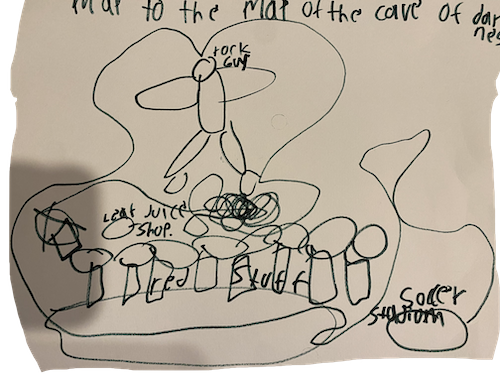 Map to the Map of the cave of dar
nes
rock
Guy
Leaf Juice
Shop.
red Stuff
Soccer